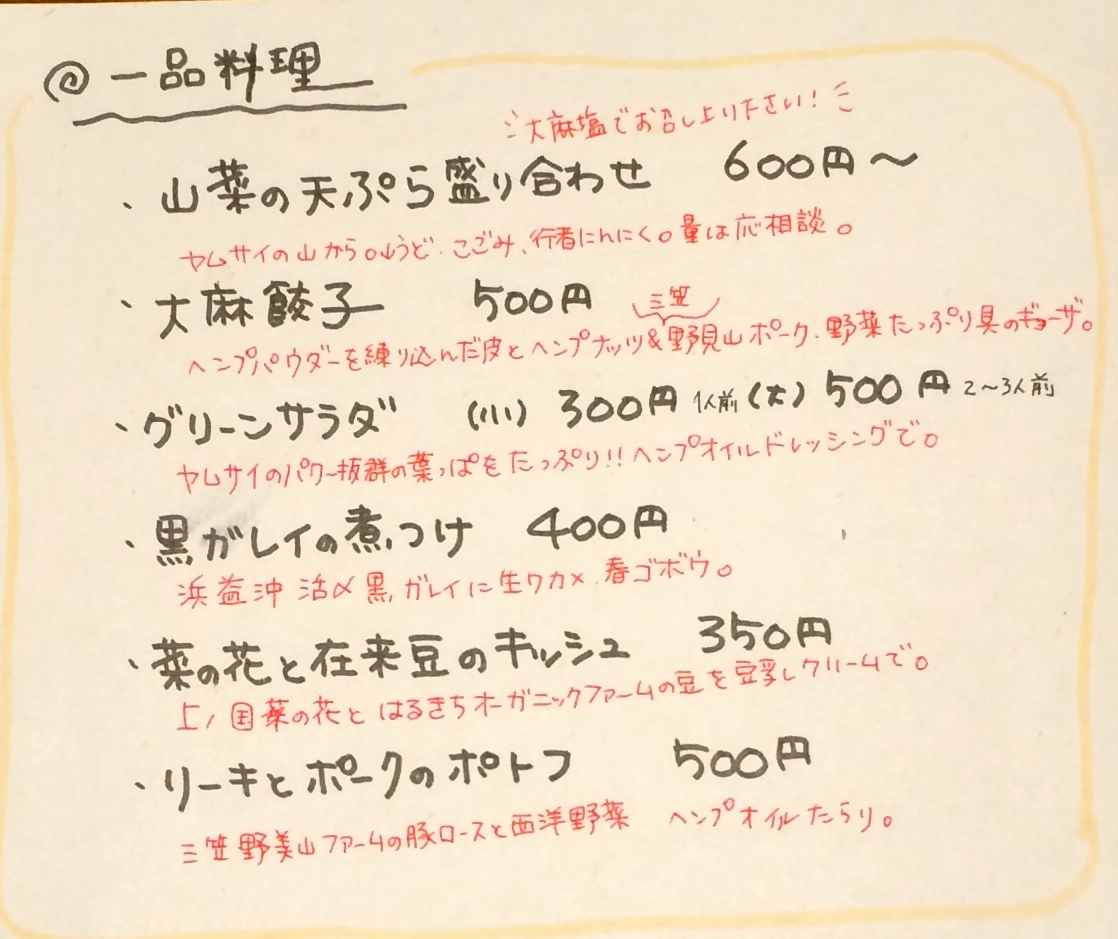 @ 一品料理
大麻塩でお召し上り下さい!
・山菜の天ぷら盛り合わせ 600円〜
ヤムサイの山から。山うど、こごみ、行者にんにく。量は応相談。
・大麻餃子 500円
三笠
ヘンプパウダーを練り込んだ皮とヘンプナッツ&野見山ポーク、野菜たっぷり具のギョーザ。
・グリーンサラダ (小) 300円 1人前 (大) 500円 2〜3人前
ヤムサイのパワー抜群の葉っぱをたっぷり!! ヘンプオイルドレッシングで。
・黒ガレイの煮つけ 400円
浜益沖 活〆黒ガレイに生ワカメ、春ゴボウ。
・菜の花と在来豆のキッシュ 350円
上ノ国菜の花と はるきちオーガニックファームの豆を豆乳クリームで。
・リーキとポークのポトフ 500円
三笠野美山ファームの豚ロースと西洋野菜 ヘンプオイルたらり。